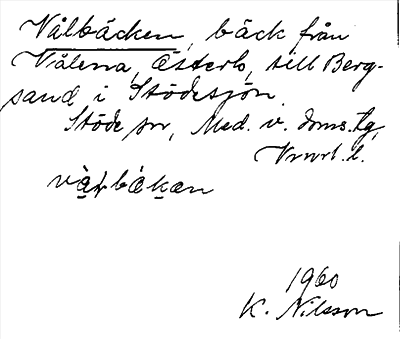 Vålbäcken, bäck från
Vålena, Österb, till Berg-
sand i Stödesjön.
Stöde sn, Med. v. doms. tg,
Vnrl. l.
våḷbäkan
1960
K. Nilsson